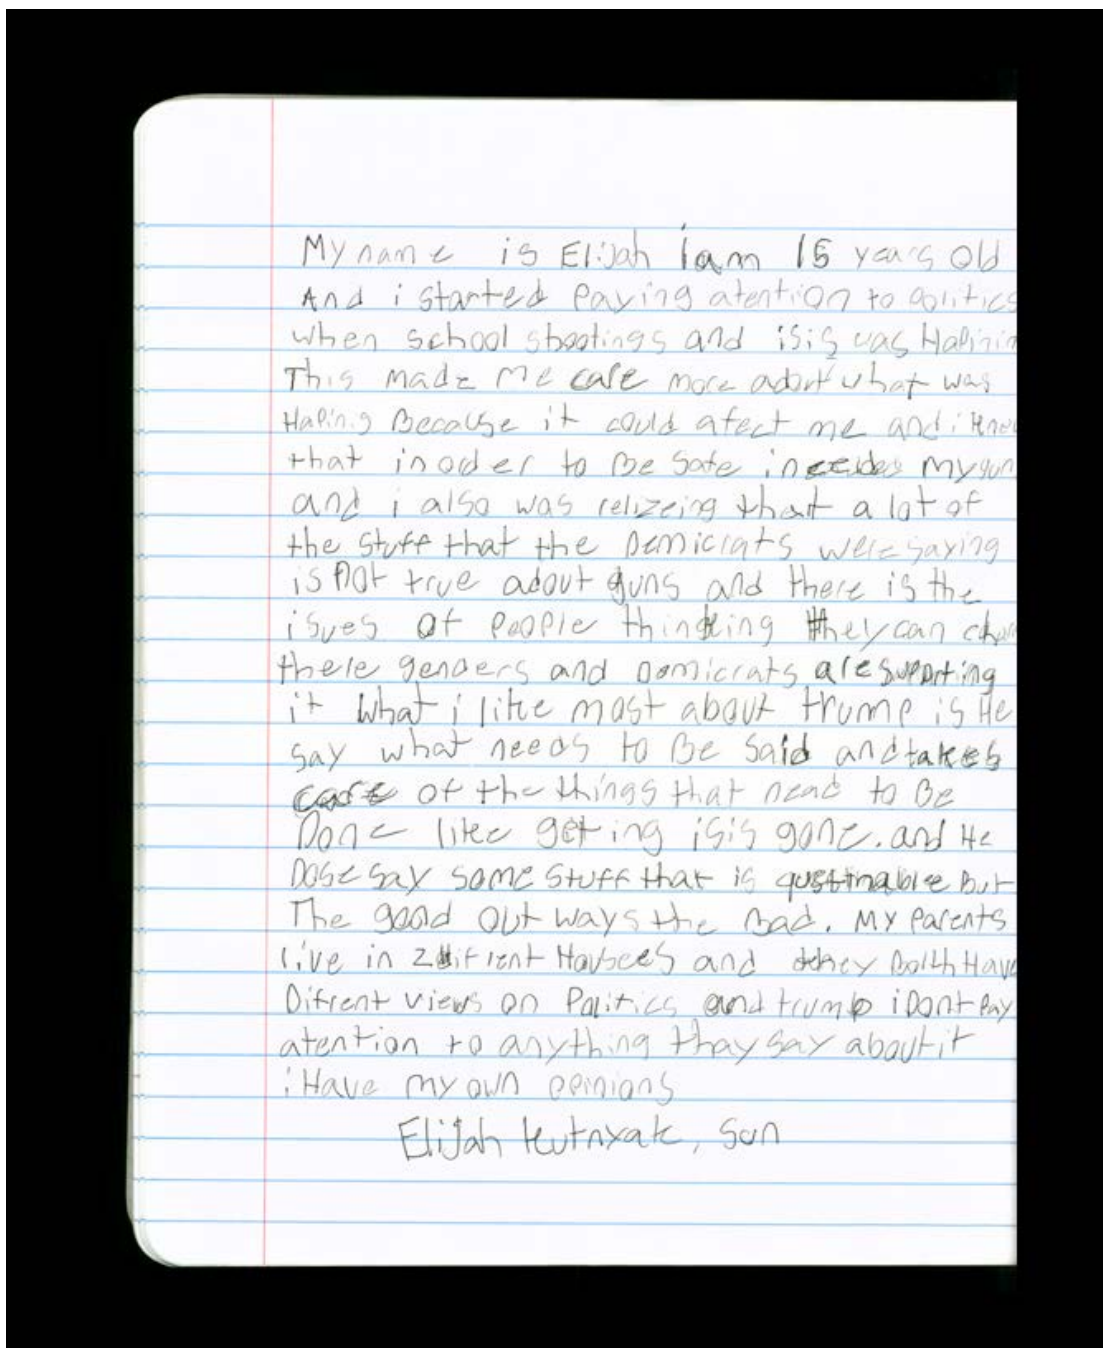 My name is Elijah iam 15 years old
And i started Paying atention to politics
when school shootings and isis was Hapinin
This made me care more adout what was
Haping Because it could afect me and i know
that inoder to Be safe ineeded my gun
and i also was relizeing that a lot of
the stuff that the Demicrats were saying
is not true adout guns and there is the
isues of people thinking they can chan
there genders and Domicrats are suporting
it what i like most about trump is He
say what needs to Be said and takes
care of the things that nead to Be
Done like geting isis gone. and He
Dose say some stuff that is questinable But
The good out ways the Bad. My Parents
live in 2 difrent Housees and they Bolth Have
Difrent views on Politics and trump i Dont Pay
atention to anything thay say about it
i Have my own opinions
Elijah Kutnyak, Son